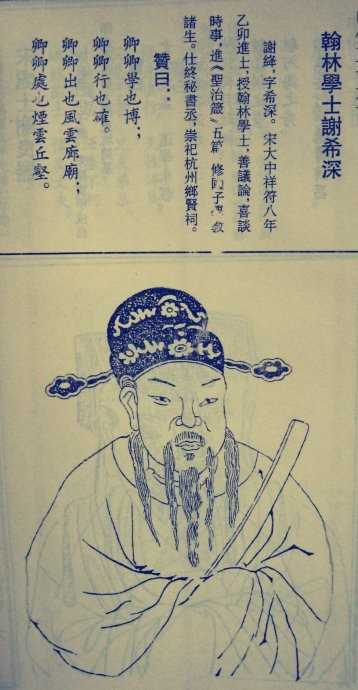 翰林學士謝希深
謝絳，字希深。宋大中祥符八年
乙卯進士，授翰林學士，善議論，喜談
時事，進《聖治箴》五篇 修國子 教
諸生。仕終秘書丞，崇祀杭州鄉賢祠。
贊曰：
卿卿學也博；
卿卿行也確。
卿卿出也風雲廊廟；
卿卿處也煙雲丘壑。